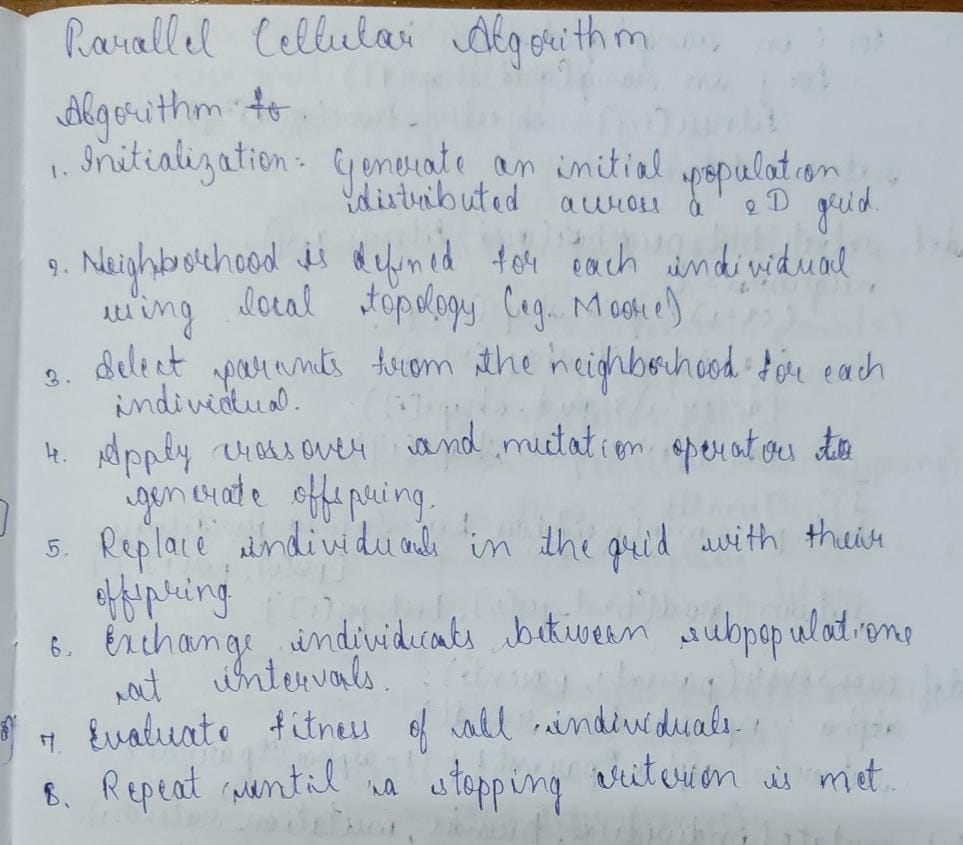 Parallel Cellular Algorithm
Algorithm to
1. Initialization - Generate an initial population
distributed across a 2D grid.
2. Neighborhood is defined for each individual
using local topology (eg. Moore)
3. Select parents from the neighborhood for each
individual.
4. Apply crossover and mutation operators to
generate offspring.
5. Replace individuals in the grid with their
offspring.
6. Exchange individuals between subpopulations
at intervals.
7. Evaluate fitness of all individuals.
8. Repeat until a stopping criterion is met.